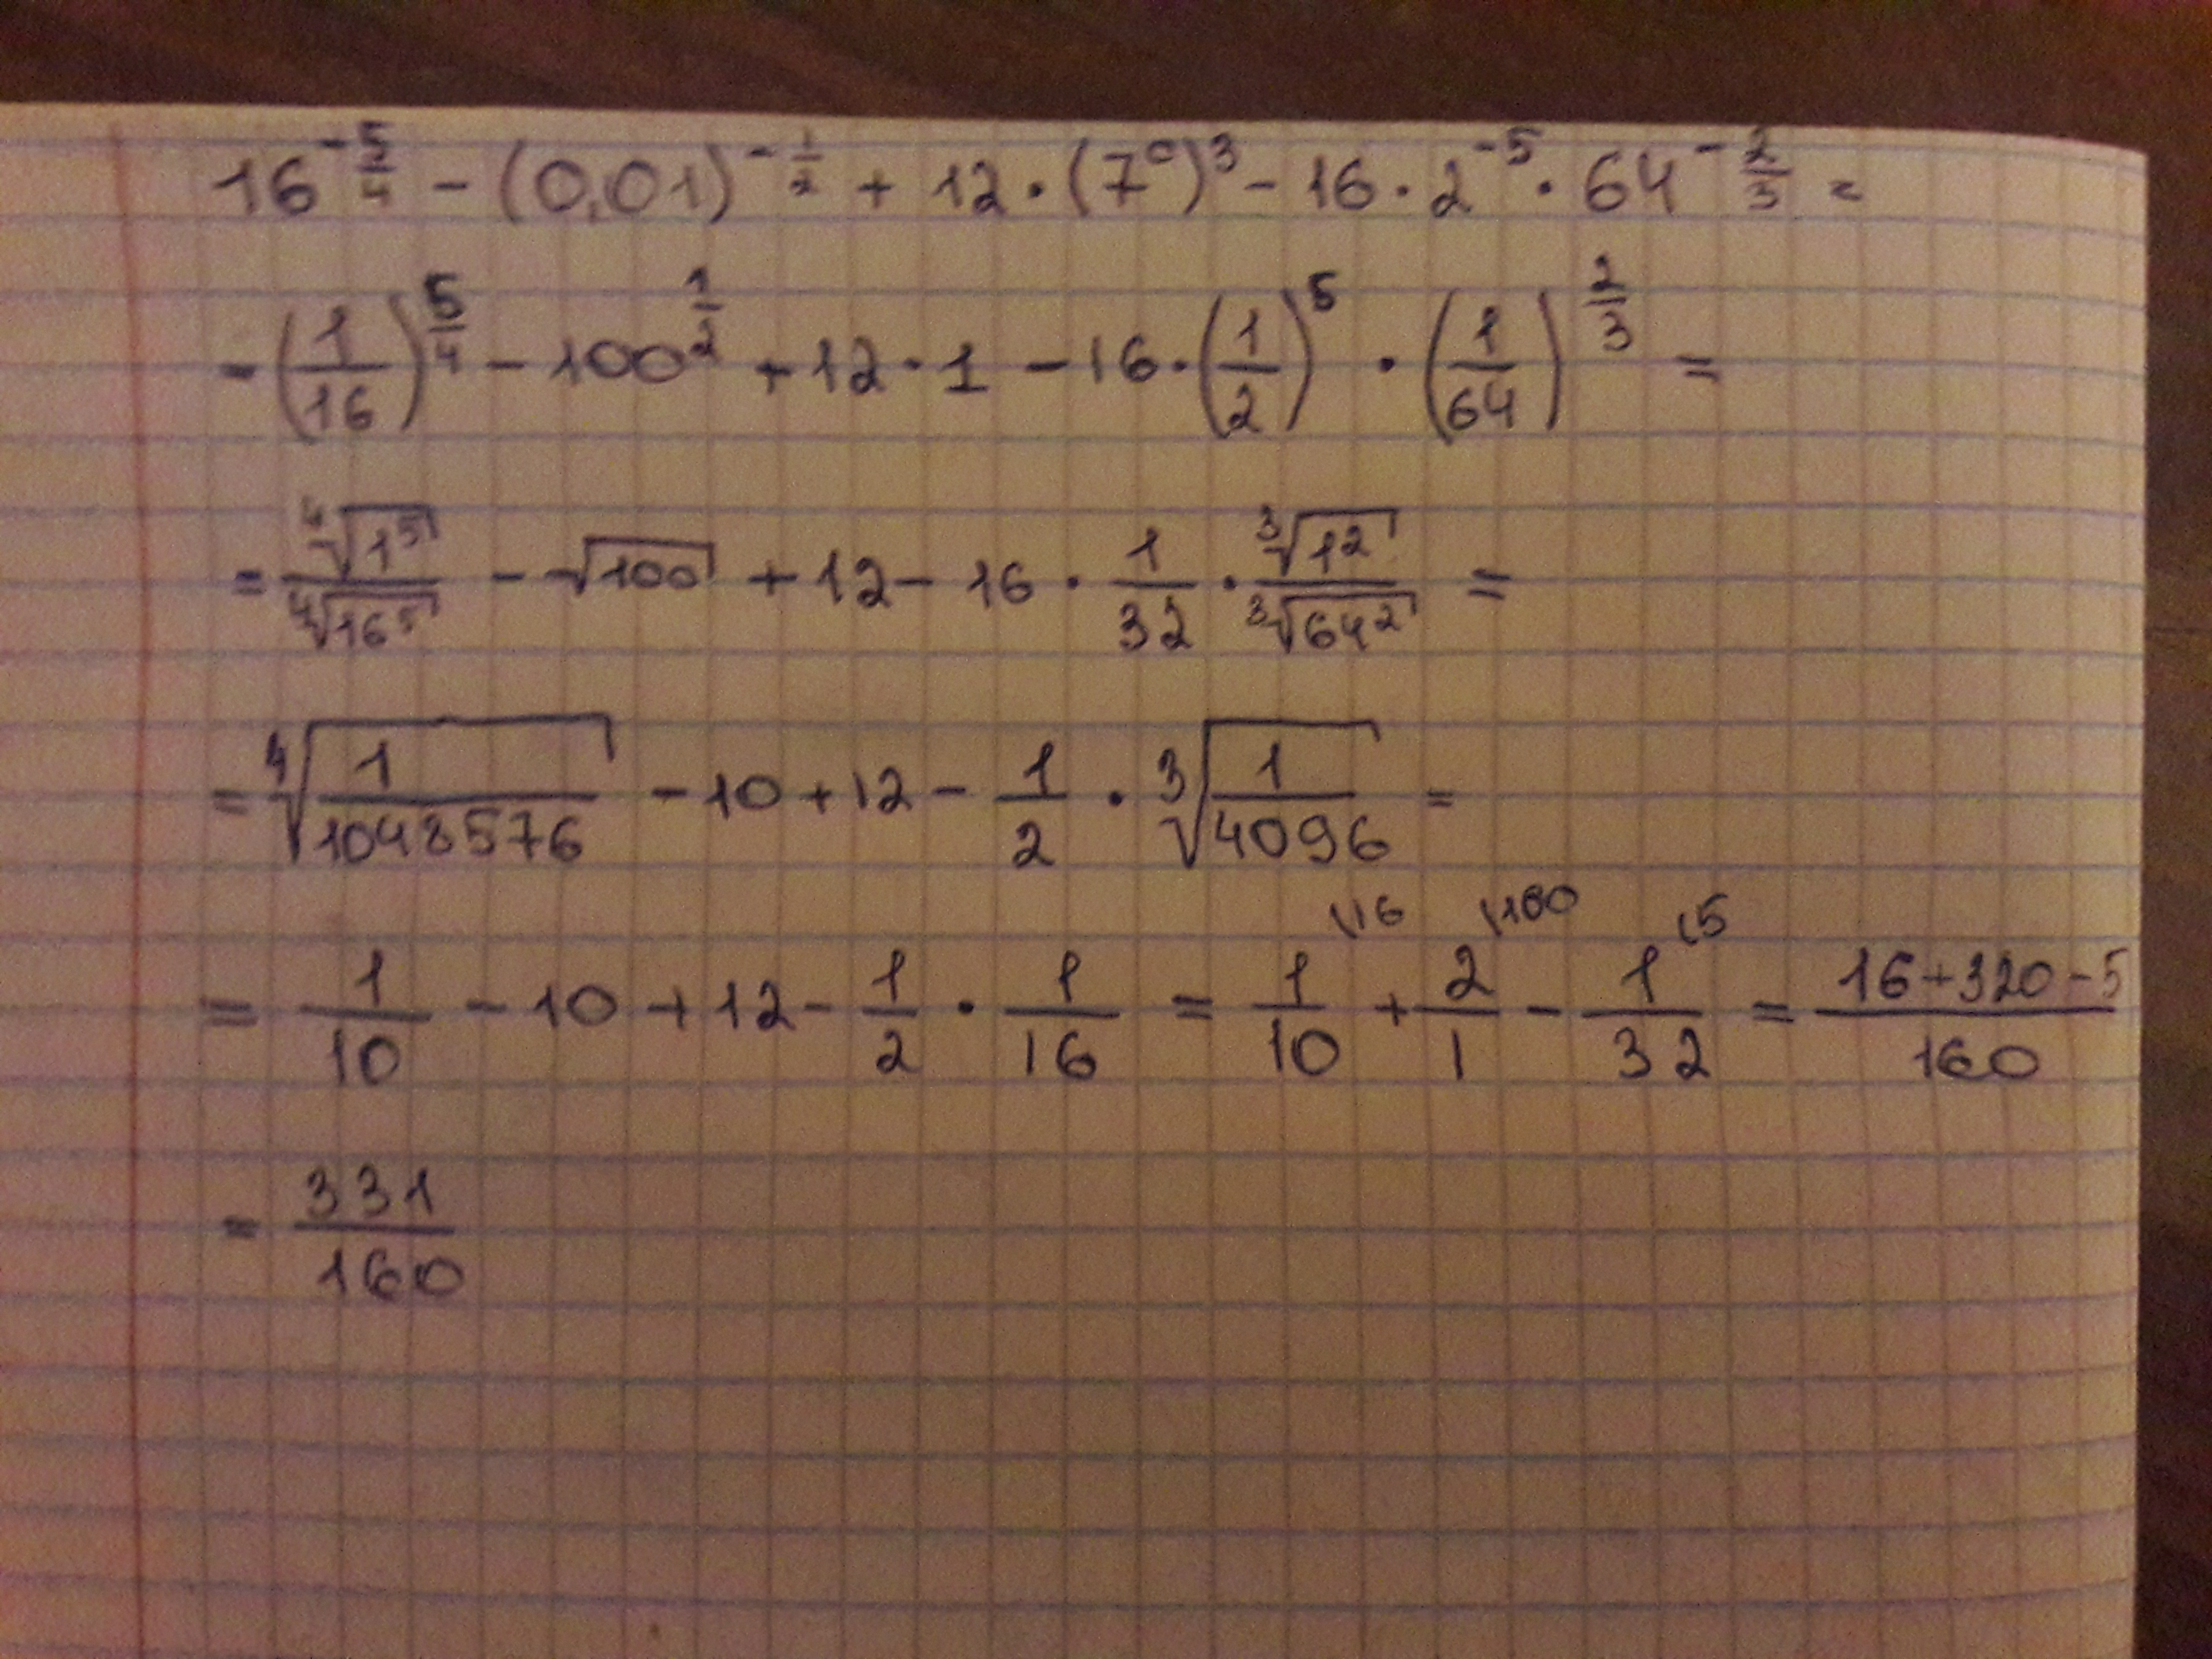 16^{-5/4} - (0,01)^{-1/2} + 12 · (7^0)^3 - 16 · 2^{-5} · 64^{-2/3} =
= (1/16)^{5/4} - 100^{1/2} + 12 · 1 - 16 · (1/2)^5 · (1/64)^{2/3} =
= ⁴√(1^5) / ⁴√(16^5) - √100 + 12 - 16 · 1/32 · ³√(1^2) / ³√(64^2) =
= ⁴√(1/1048576) - 10 + 12 - 1/2 · ³√(1/4096) =
= 1/10 - 10 + 12 - 1/2 · 1/16 = 1/10 \16 + 2/1 \160 - 1/32 \5 = (16+320-5)/160
= 331/160